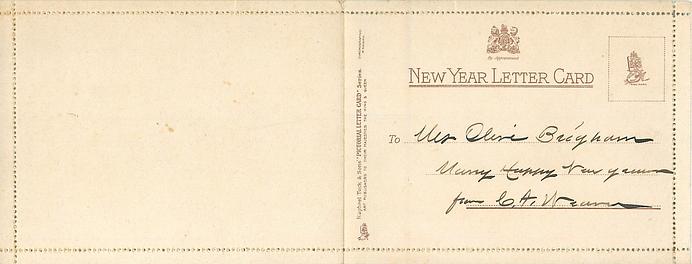 By Appointment
NEW YEAR LETTER CARD
To Miss Olive Brigham
Many Happy New years
from C. A. Weaver
Raphael Tuck & Sons' "PICTORIAL LETTER CARD" Series.
ART PUBLISHERS TO THEIR MAJESTIES THE KING & QUEEN